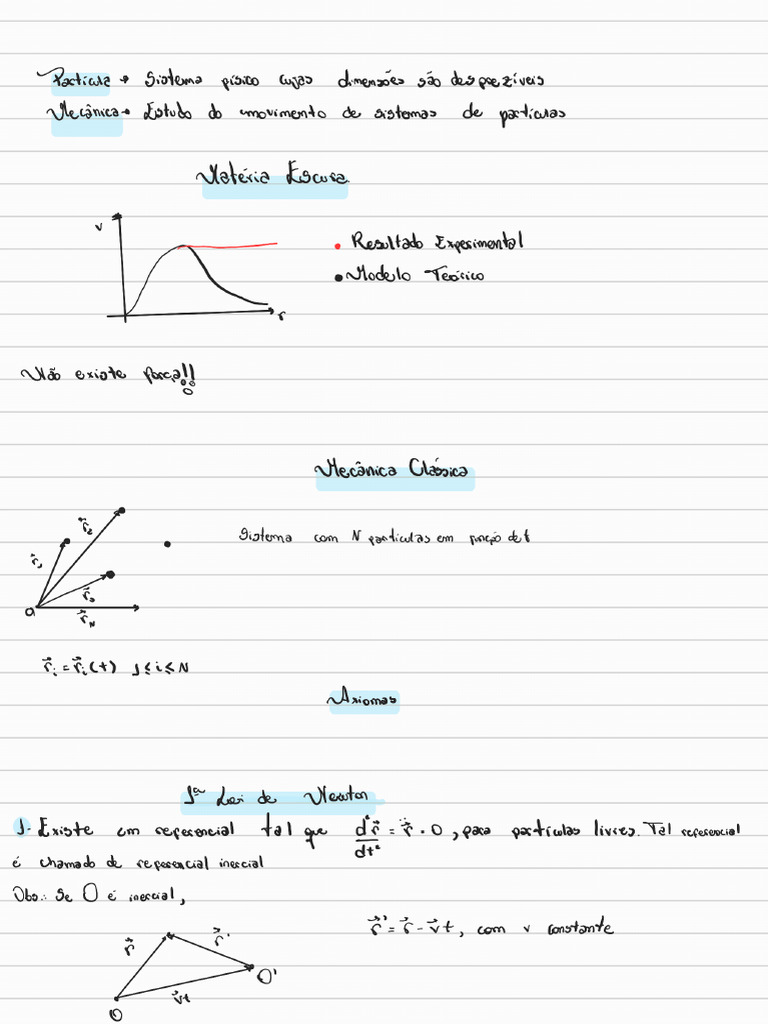 Partícula → Sistema físico cujas dimensões são desprezíveis
Mecânica → Estudo do movimento de sistemas de partículas
Matéria Escura
v
r
• Resultado Experimental
• Modelo Teórico
Não existe força!!
Mecânica Clássica
Sistema com N partículas em função de t
r⃗₁
r⃗₂
r⃗₃
r⃗_N
O
r⃗ᵢ = r⃗ᵢ(t) 1 ≤ i ≤ N
Axiomas
1ª Lei de Newton
1. Existe um referencial tal que d²r⃗/dt² = r⃗̈ = 0, para partículas livres. Tal referencial
é chamado de referencial inercial
Obs.: Se O é inercial,
r⃗' = r⃗ - v⃗t, com v constante
r⃗
r⃗'
O'
v⃗t
O